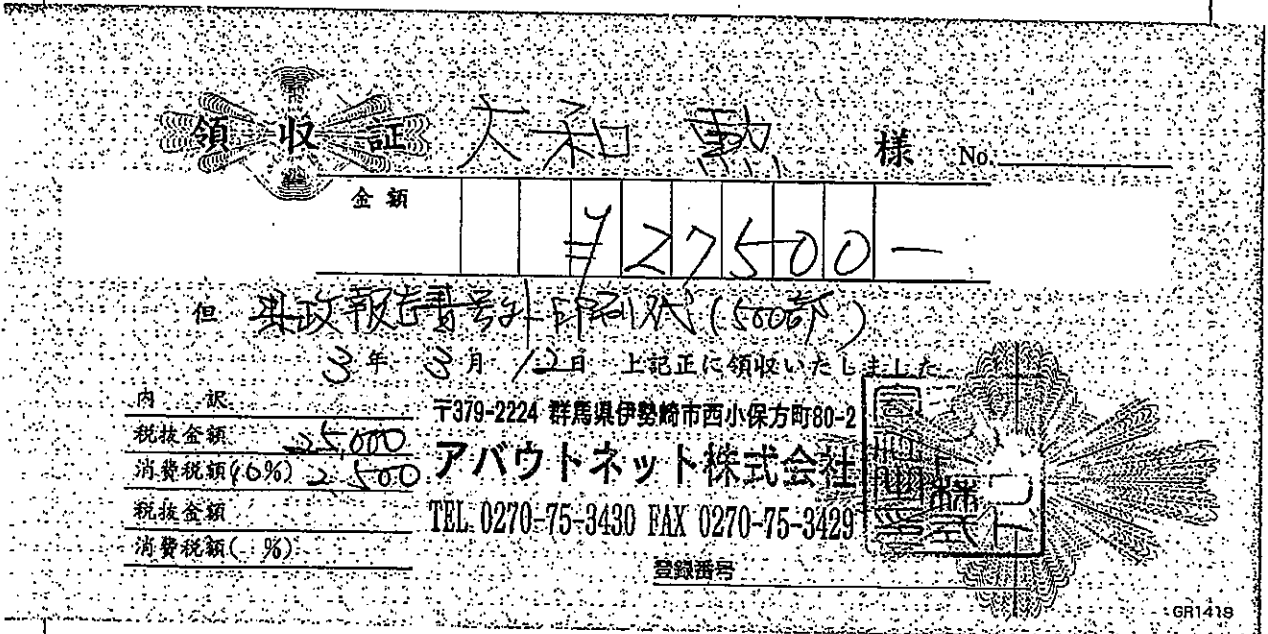 領収証 大和 勲 様 No.
金額 ¥27500-
但 県政報告書号外印刷代(500部)
3年 3月 12日 上記正に領収いたしました
内 訳
税抜金額 25,000
消費税額(10%) 2,500
税抜金額
消費税額( %)
〒379-2224 群馬県伊勢崎市西小保方町80-2
アバウトネット株式会社
TEL. 0270-75-3430 FAX 0270-75-3429
登録番号
GR1419